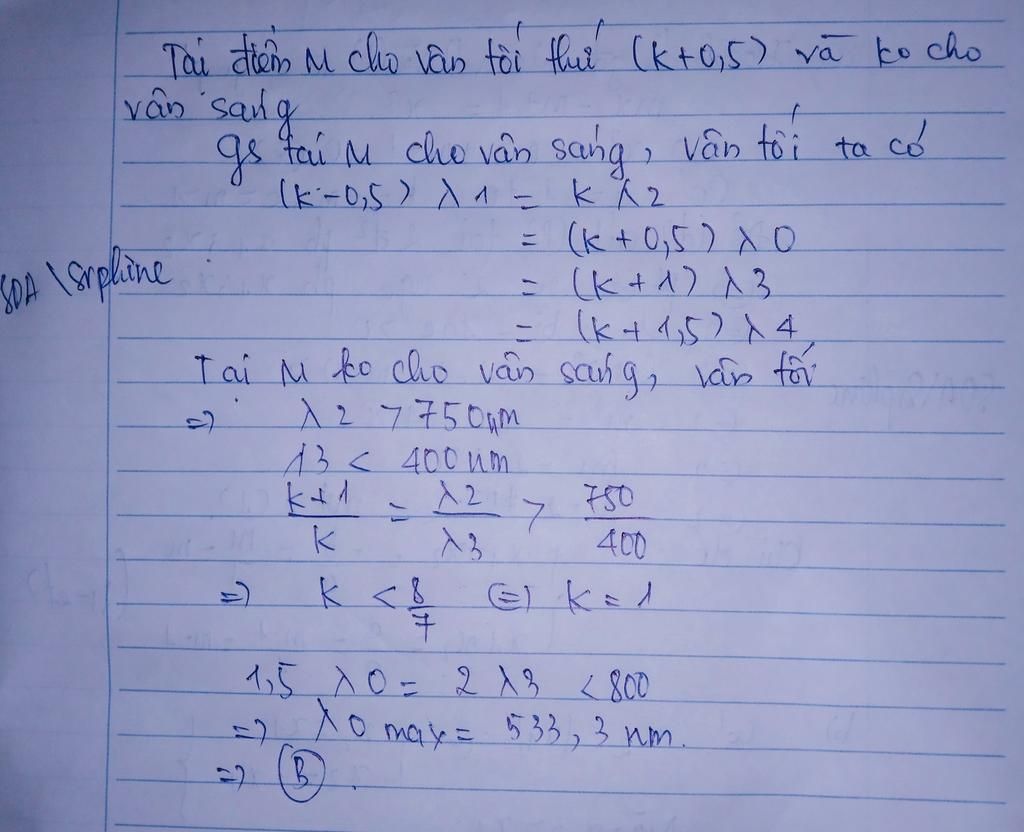 Tại điểm M cho vân tối thứ (k+0,5) và ko cho
vân sáng
gs tại M cho vân sáng, vân tối ta có
(k-0,5) λ1 = k λ2
= (k+0,5) λ0
= (k+1) λ3
= (k+1,5) λ4
Tại M ko cho vân sáng, vân tối
=> λ2 > 750nm
λ3 < 400nm
k+1/k = λ2/λ3 > 750/400
=> k < 8/7 (=) k=1
1,5 λ0 = 2 λ3 < 800
=> λ0 max = 533,3 nm.
=> (B).